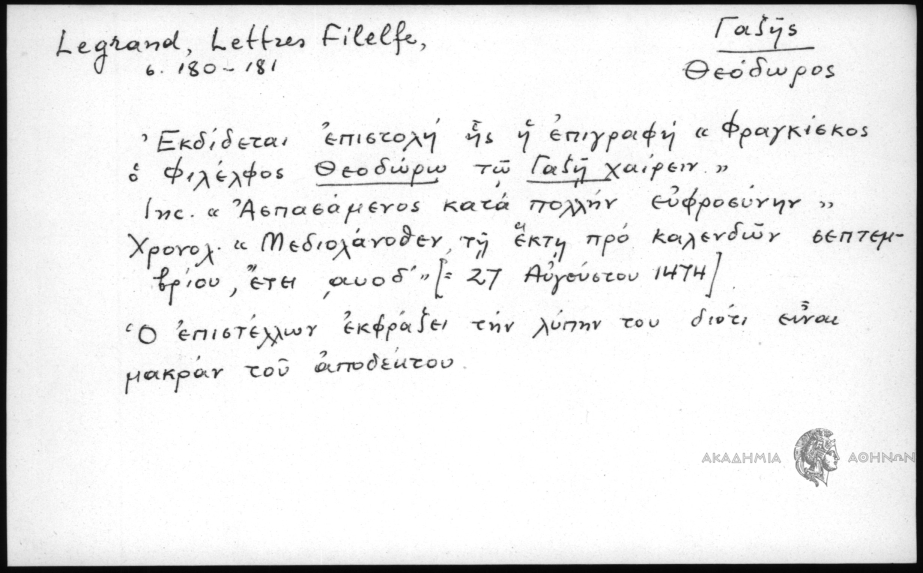 Legrand, Lettres Filelfe,
σ. 180-181
Γαζῆς
Θεόδωρος
Ἐκδίδεται ἐπιστολή ἧς ἡ ἐπιγραφή «Φραγκίσκος
ὁ Φιλέλφος Θεοδώρω τῶ Γαζῆ χαίρειν.»
Inc. «Ἀσπασάμενος κατά πολλήν εὐφροσύνην»
Χρονολ. «Μεδιολάνοθεν, τῇ ἕκτῃ πρό καλενδῶν σεπτεμ-
βρίου, ἔτει ͵αυοδ´» [= 27 Αὐγούστου 1474]
Ὁ ἐπιστέλλων ἐκφράζει τήν λύπην του διότι εἶναι
μακράν τοῦ ἀποδέκτου.
ΑΚΑΔΗΜΙΑ ΑΘΗΝΩΝ